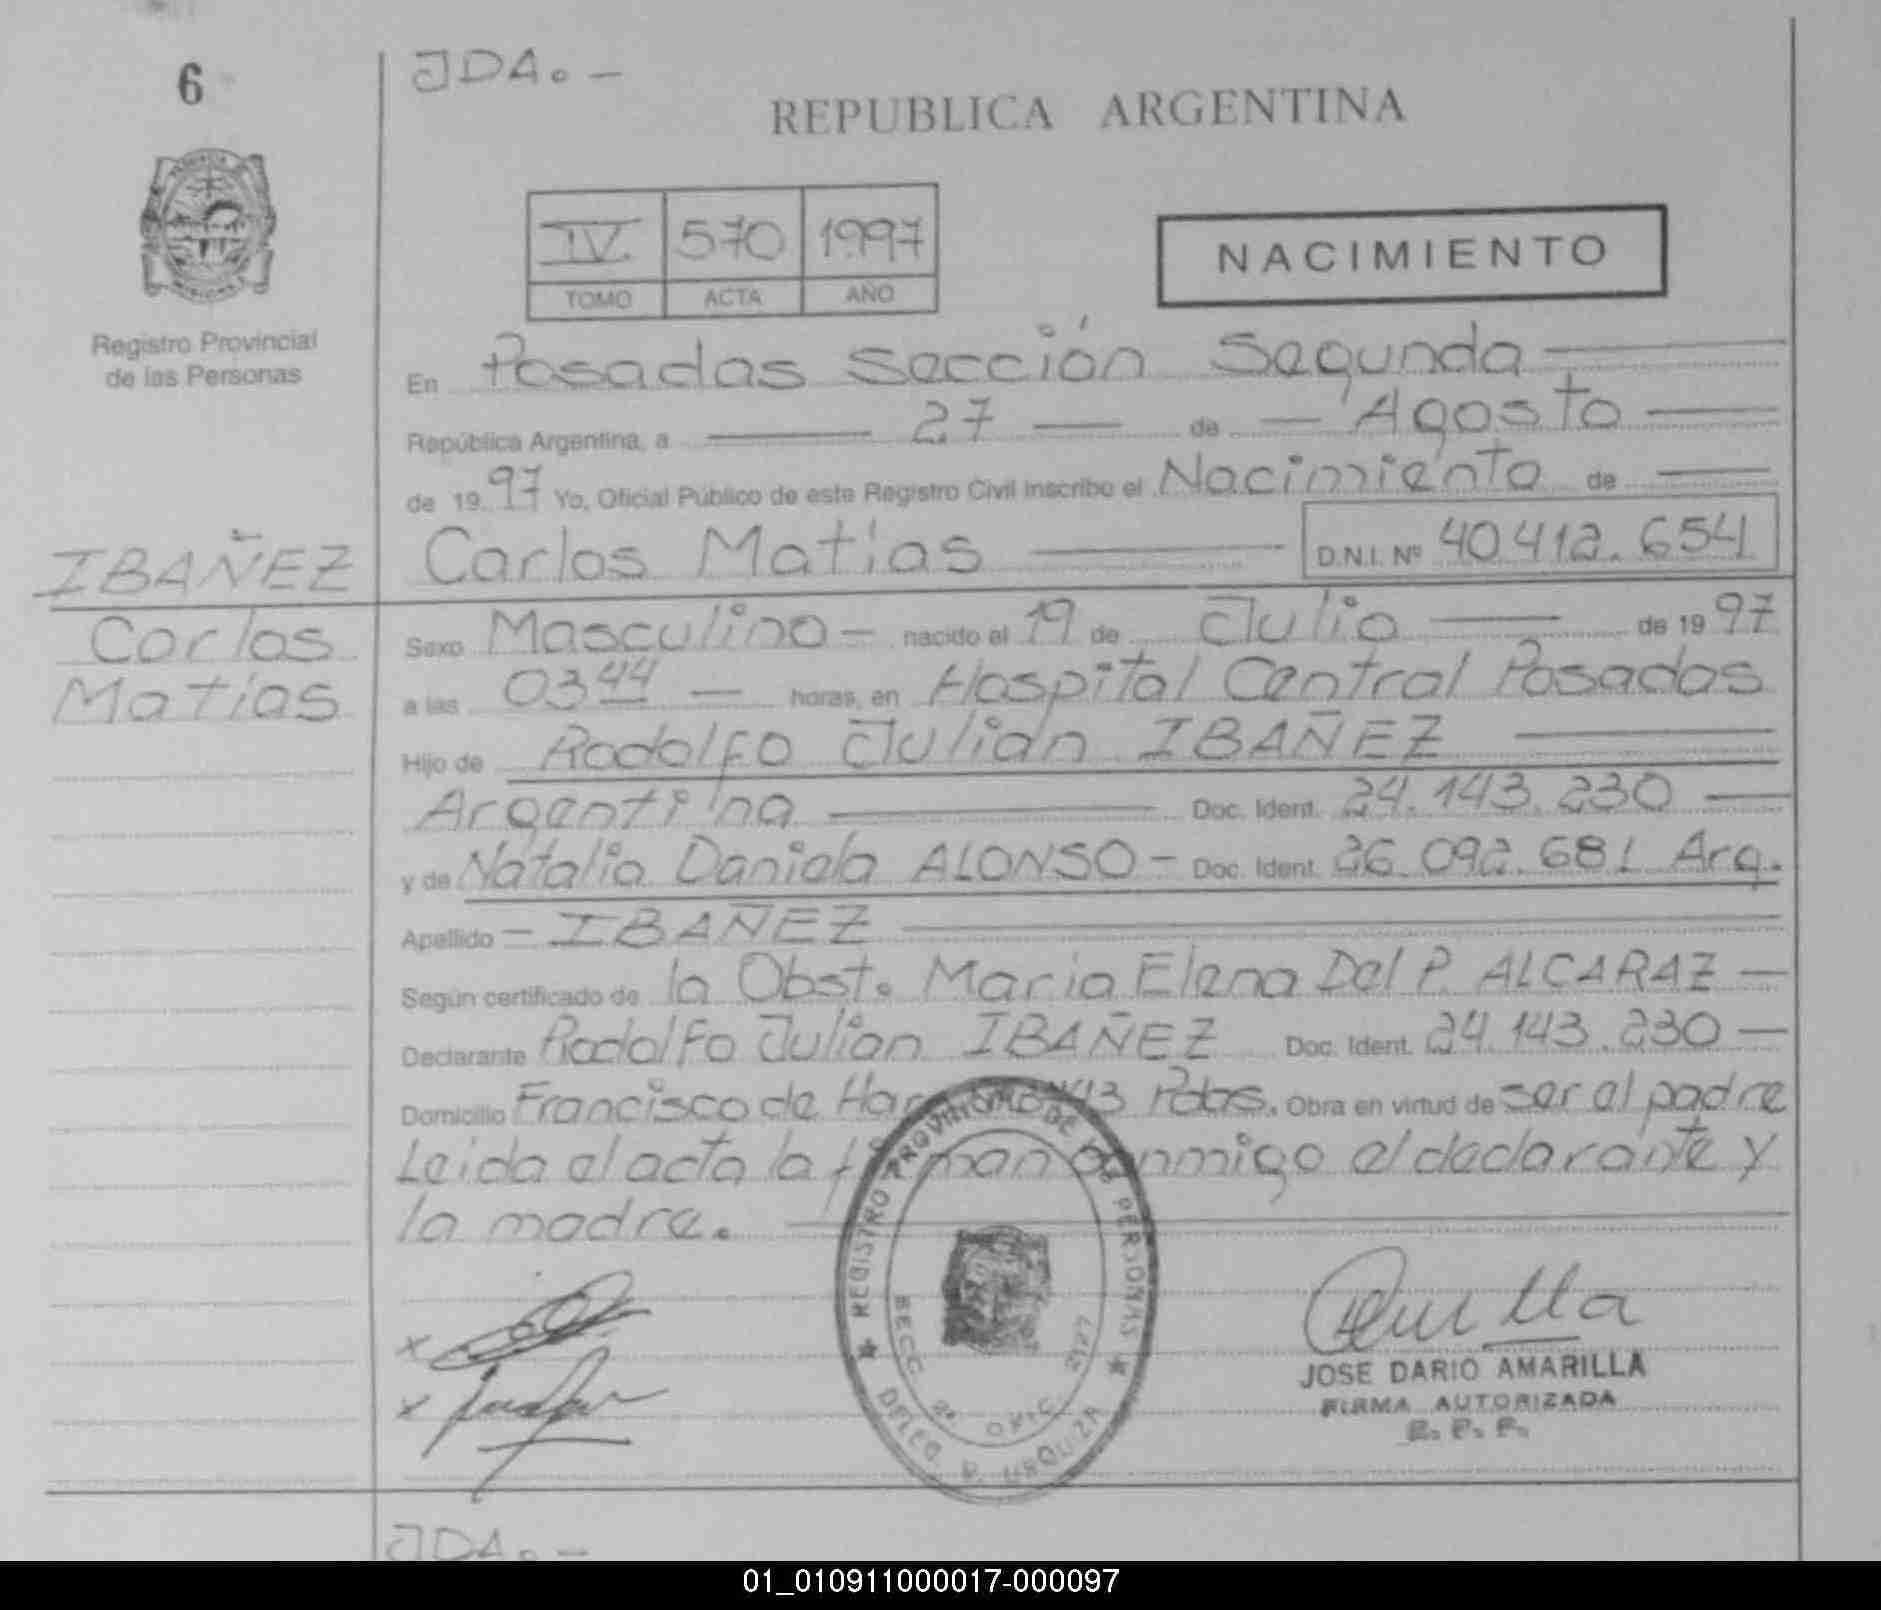 6
JDA. -
REPUBLICA ARGENTINA
IV. 570 1997
TOMO ACTA AÑO
NACIMIENTO
Registro Provincial
de las Personas
En Posadas Sección Segunda
República Argentina, a 27 de Agosto
de 1997 Yo, Oficial Público de este Registro Civil inscribo el Nacimiento de
IBAÑEZ
Carlos
Matías
Carlos Matías D.N.I. Nº 40.412.654
Sexo Masculino - nacido el 19 de Julio de 1997
a las 03 44 horas, en Hospital Central Posadas
Hijo de Rodolfo Julián IBAÑEZ
Argentina Doc. Ident. 24.143.230
y de Natalia Daniela ALONSO - Doc. Ident. 26.092.681 Arg.
Apellido - IBAÑEZ
Según certificado de la Obst. Maria Elena Del P. ALCARAZ -
Declarante Rodolfo Julián IBAÑEZ Doc. Ident. 24.143.230 -
Domicilio Francisco de Pdas. Obra en virtud de ser el padre
Leida el acta la firman conmigo el declarante y
la madre.
REGISTRO PROVINCIAL DE LAS PERSONAS
SECC. 2ª
DELEG. R. URQUIZA
JOSE DARIO AMARILLA
FIRMA AUTORIZADA
R. P. P.
JDA. -
01_010911000017-000097